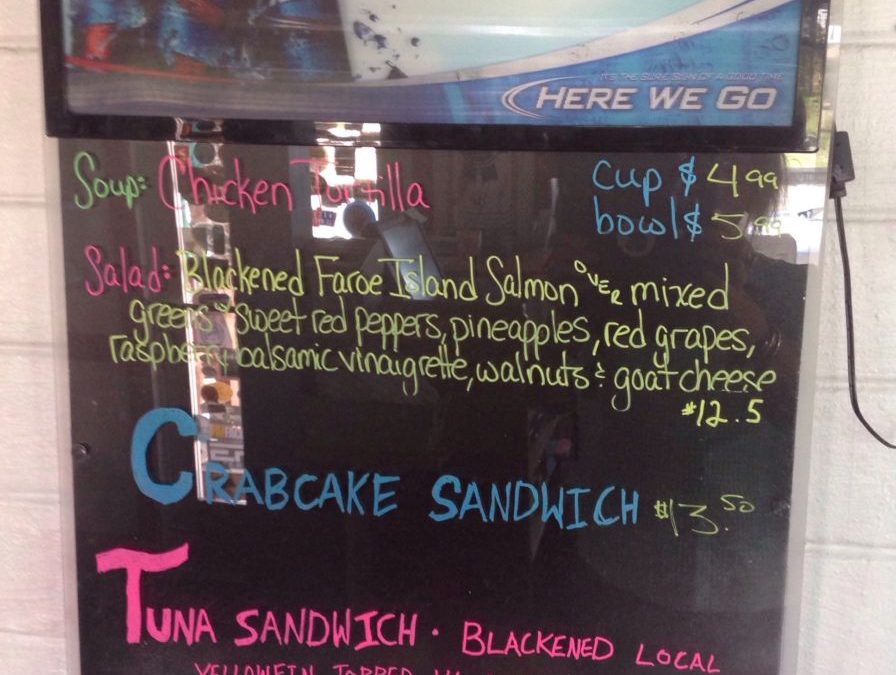 IT'S THE SURE SIGN OF A GOOD TIME
HERE WE GO
Soup: Chicken Tortilla
Cup $ 4.99
bowl $ 5.99
Salad: Blackened Faroe Island Salmon OVER mixed
greens & sweet red peppers, pineapples, red grapes,
raspberry balsamic vinaigrette, walnuts & goat cheese
$12.5
CRABCAKE SANDWICH $13.50
TUNA SANDWICH · BLACKENED LOCAL
YELLOWFIN TOPPED